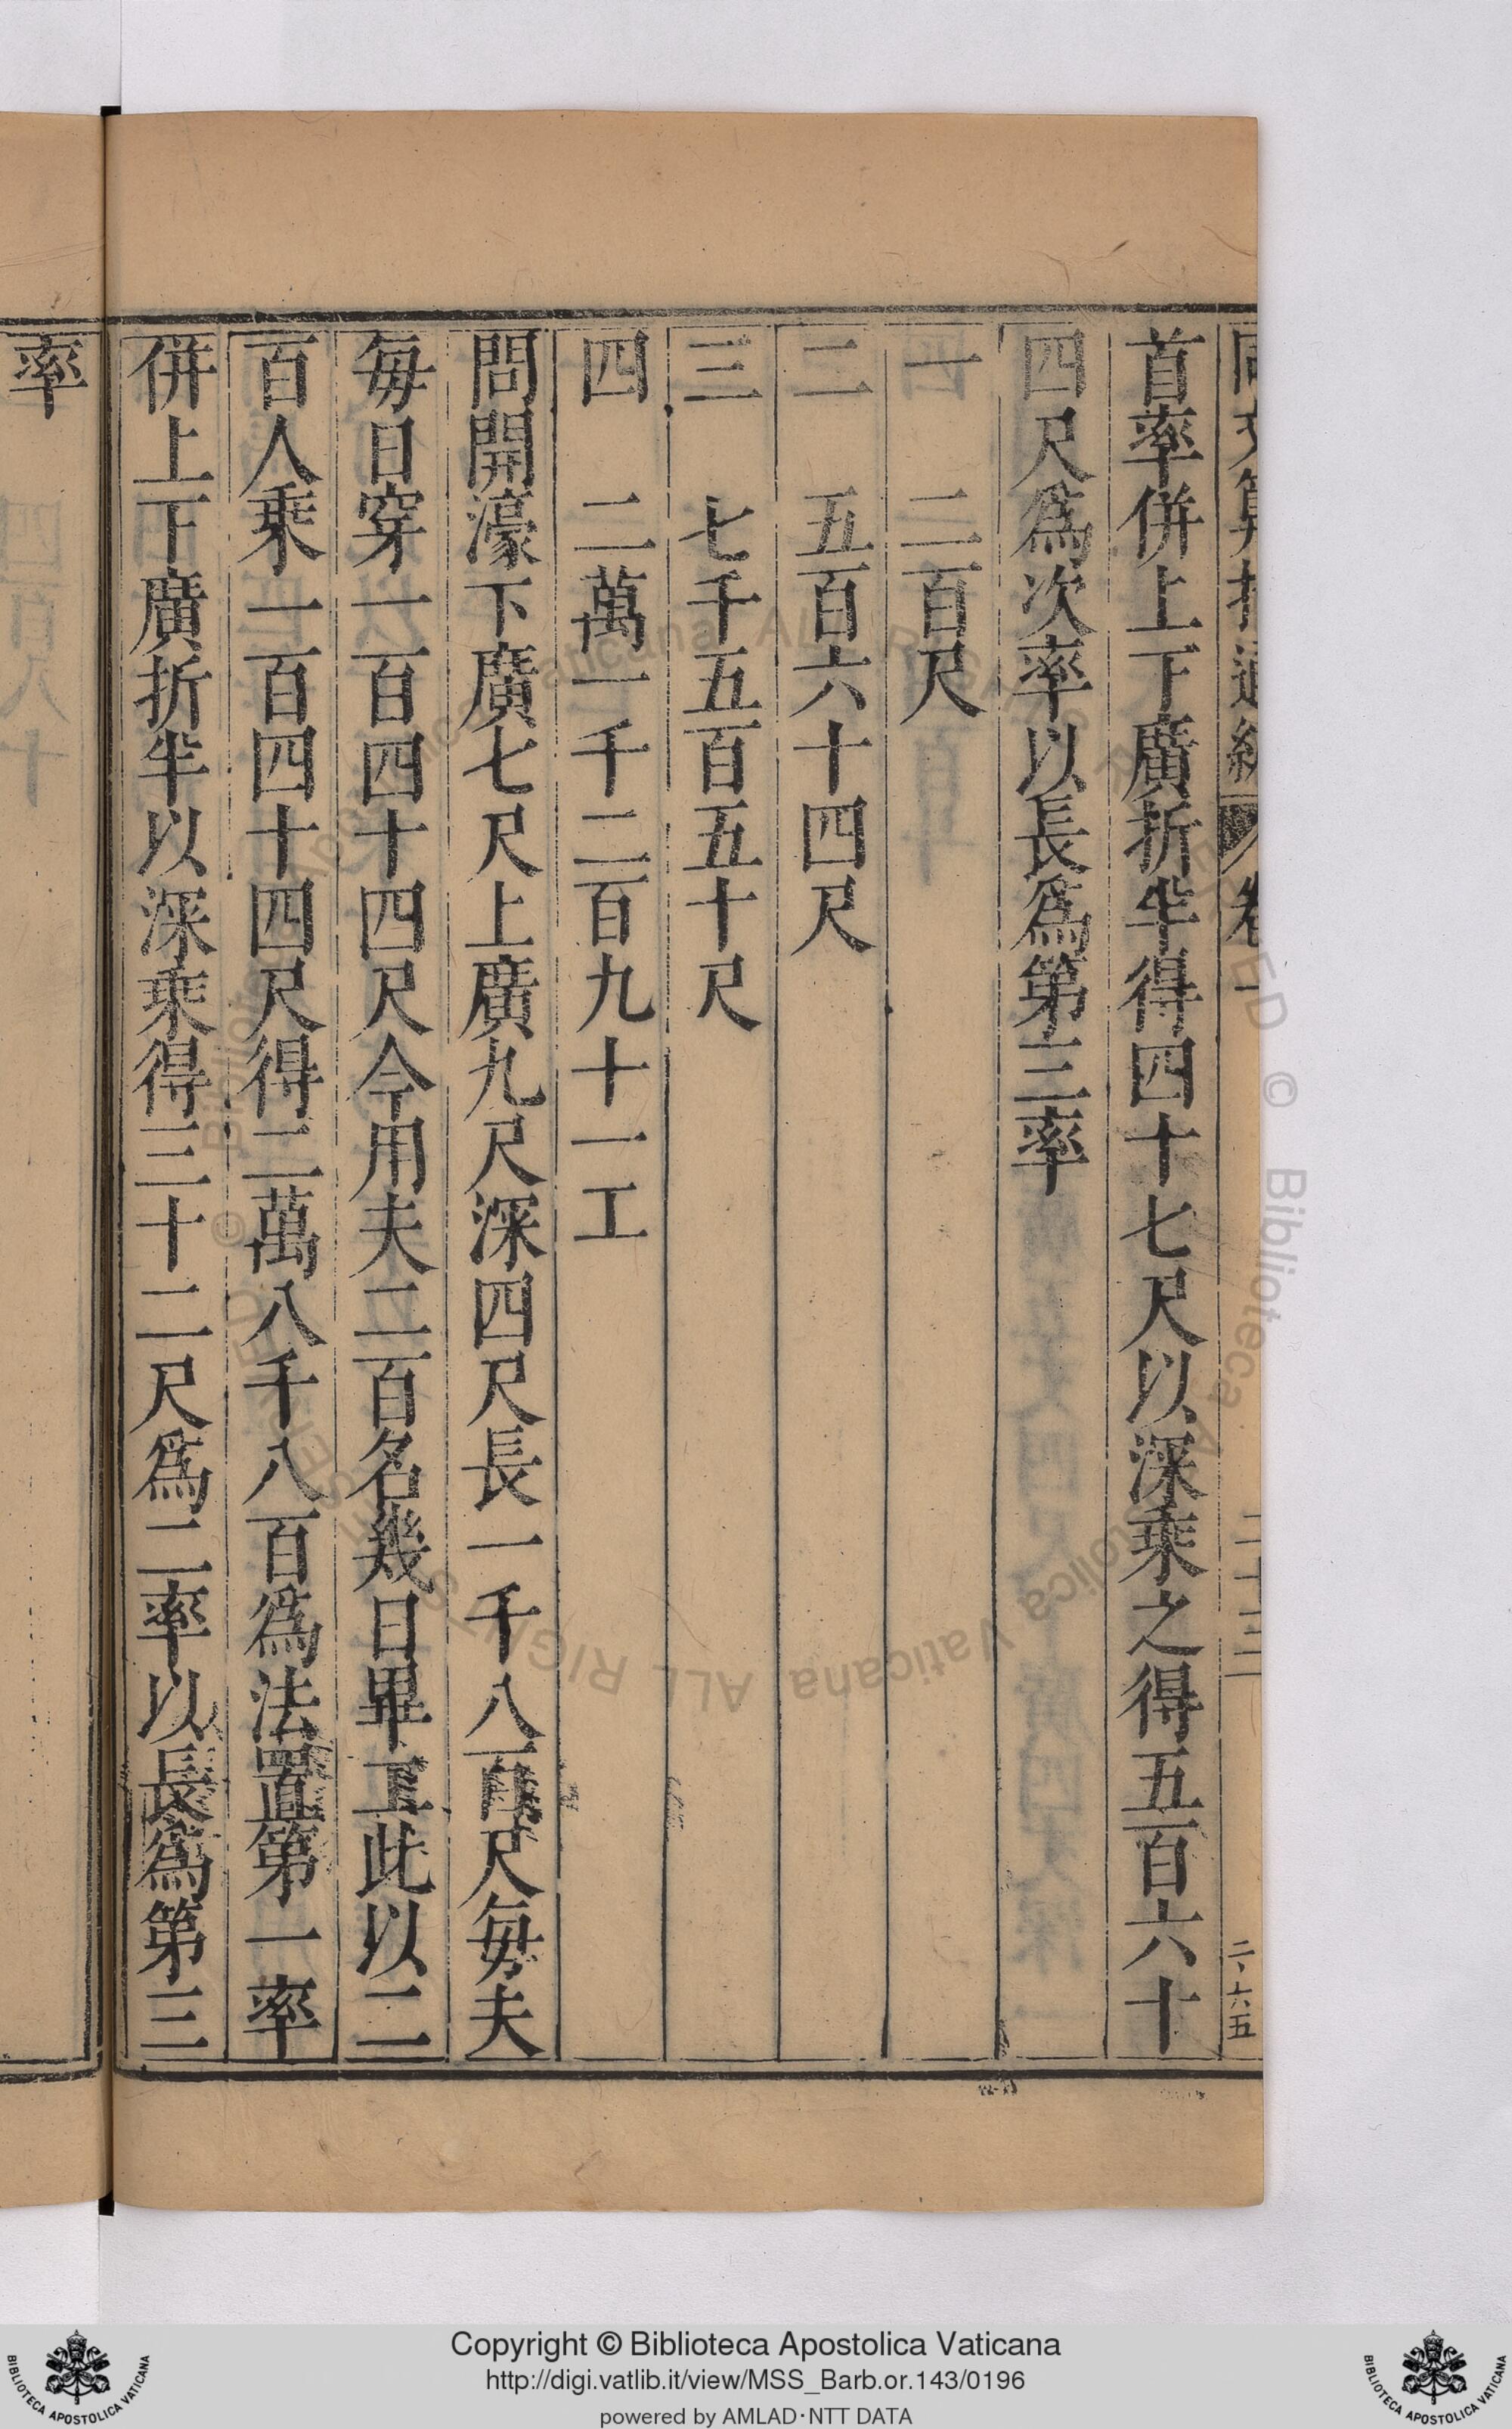 同文算指通編 卷一 二十三
首率併上下廣折半得四十七尺以深乘之得五百六十
四尺爲次率以長爲第三率
一 二百尺
二 五百六十四尺
三 七千五百五十尺
四 二萬一千二百九十一工
問開濠下廣七尺上廣九尺深四尺長一千八百尺每夫
每日穿一百四十四尺今用夫二百名幾日畢工此以二
百人乘一百四十四尺得二萬八千八百爲法置第一率
併上下廣折半以深乘得三十二尺爲二率以長爲第三
率
Copyright © Biblioteca Apostolica Vaticana
http://digi.vatlib.it/view/MSS_Barb.or.143/0196
powered by AMLAD·NTT DATA
BIBLIOTECA APOSTOLICA VATICANA
BIBLIOTECA APOSTOLICA VATICANA